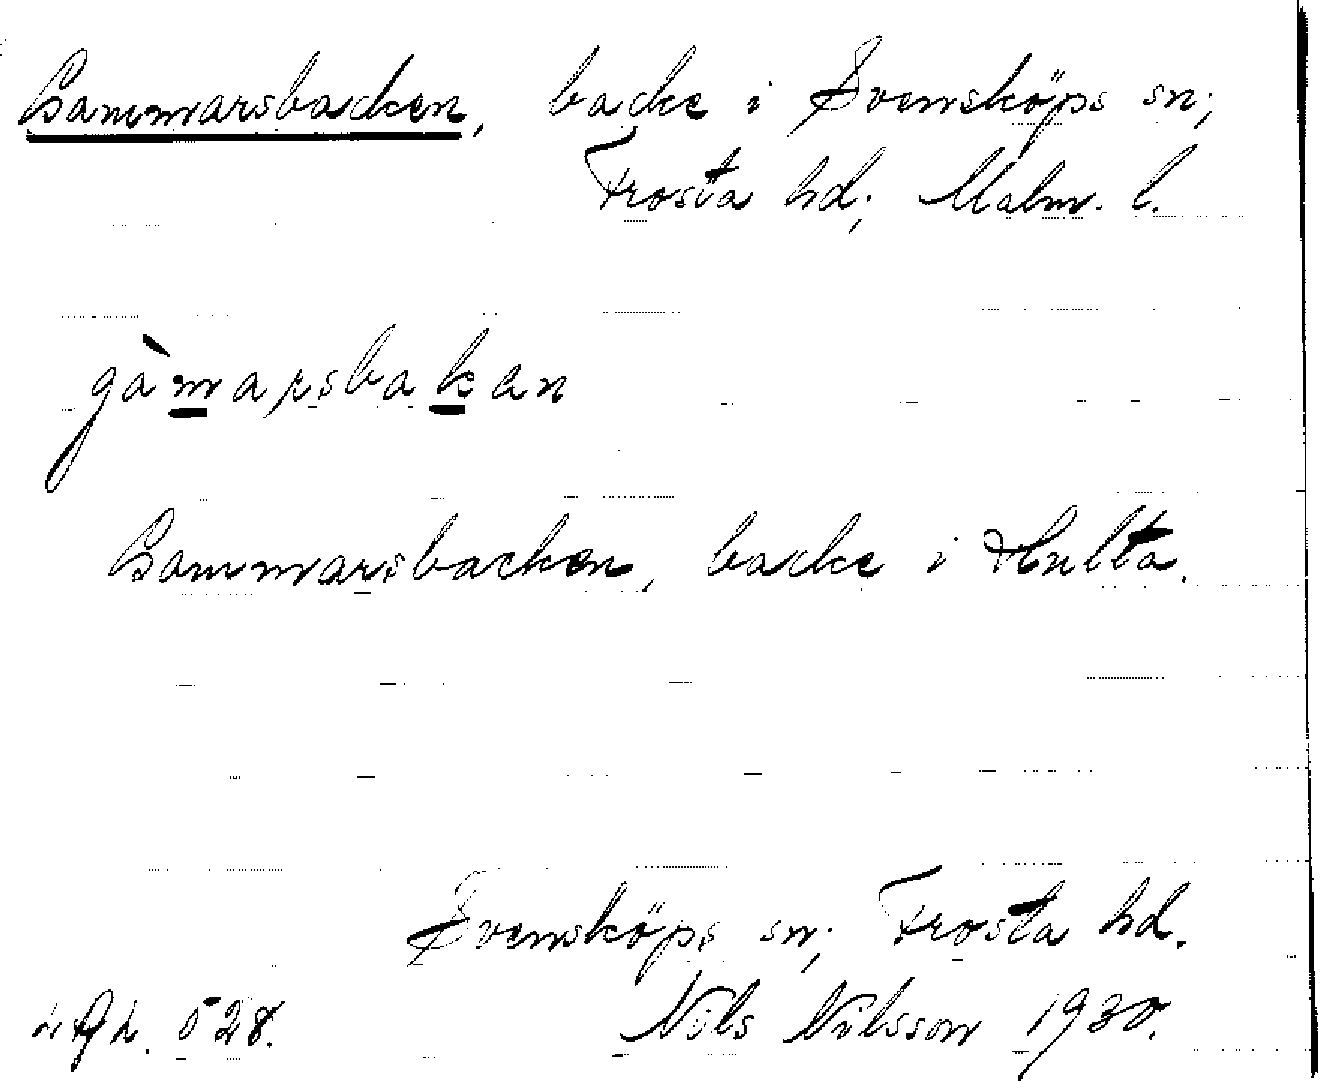 Gammarsbacken, backe i Svensköps sn;
Frosta hd; Malm. l.
gàmarsbakan
Gammarsbacken, backe i Hulta.
Svensköps sn; Frosta hd.
528. Nils Nilsson 1930.